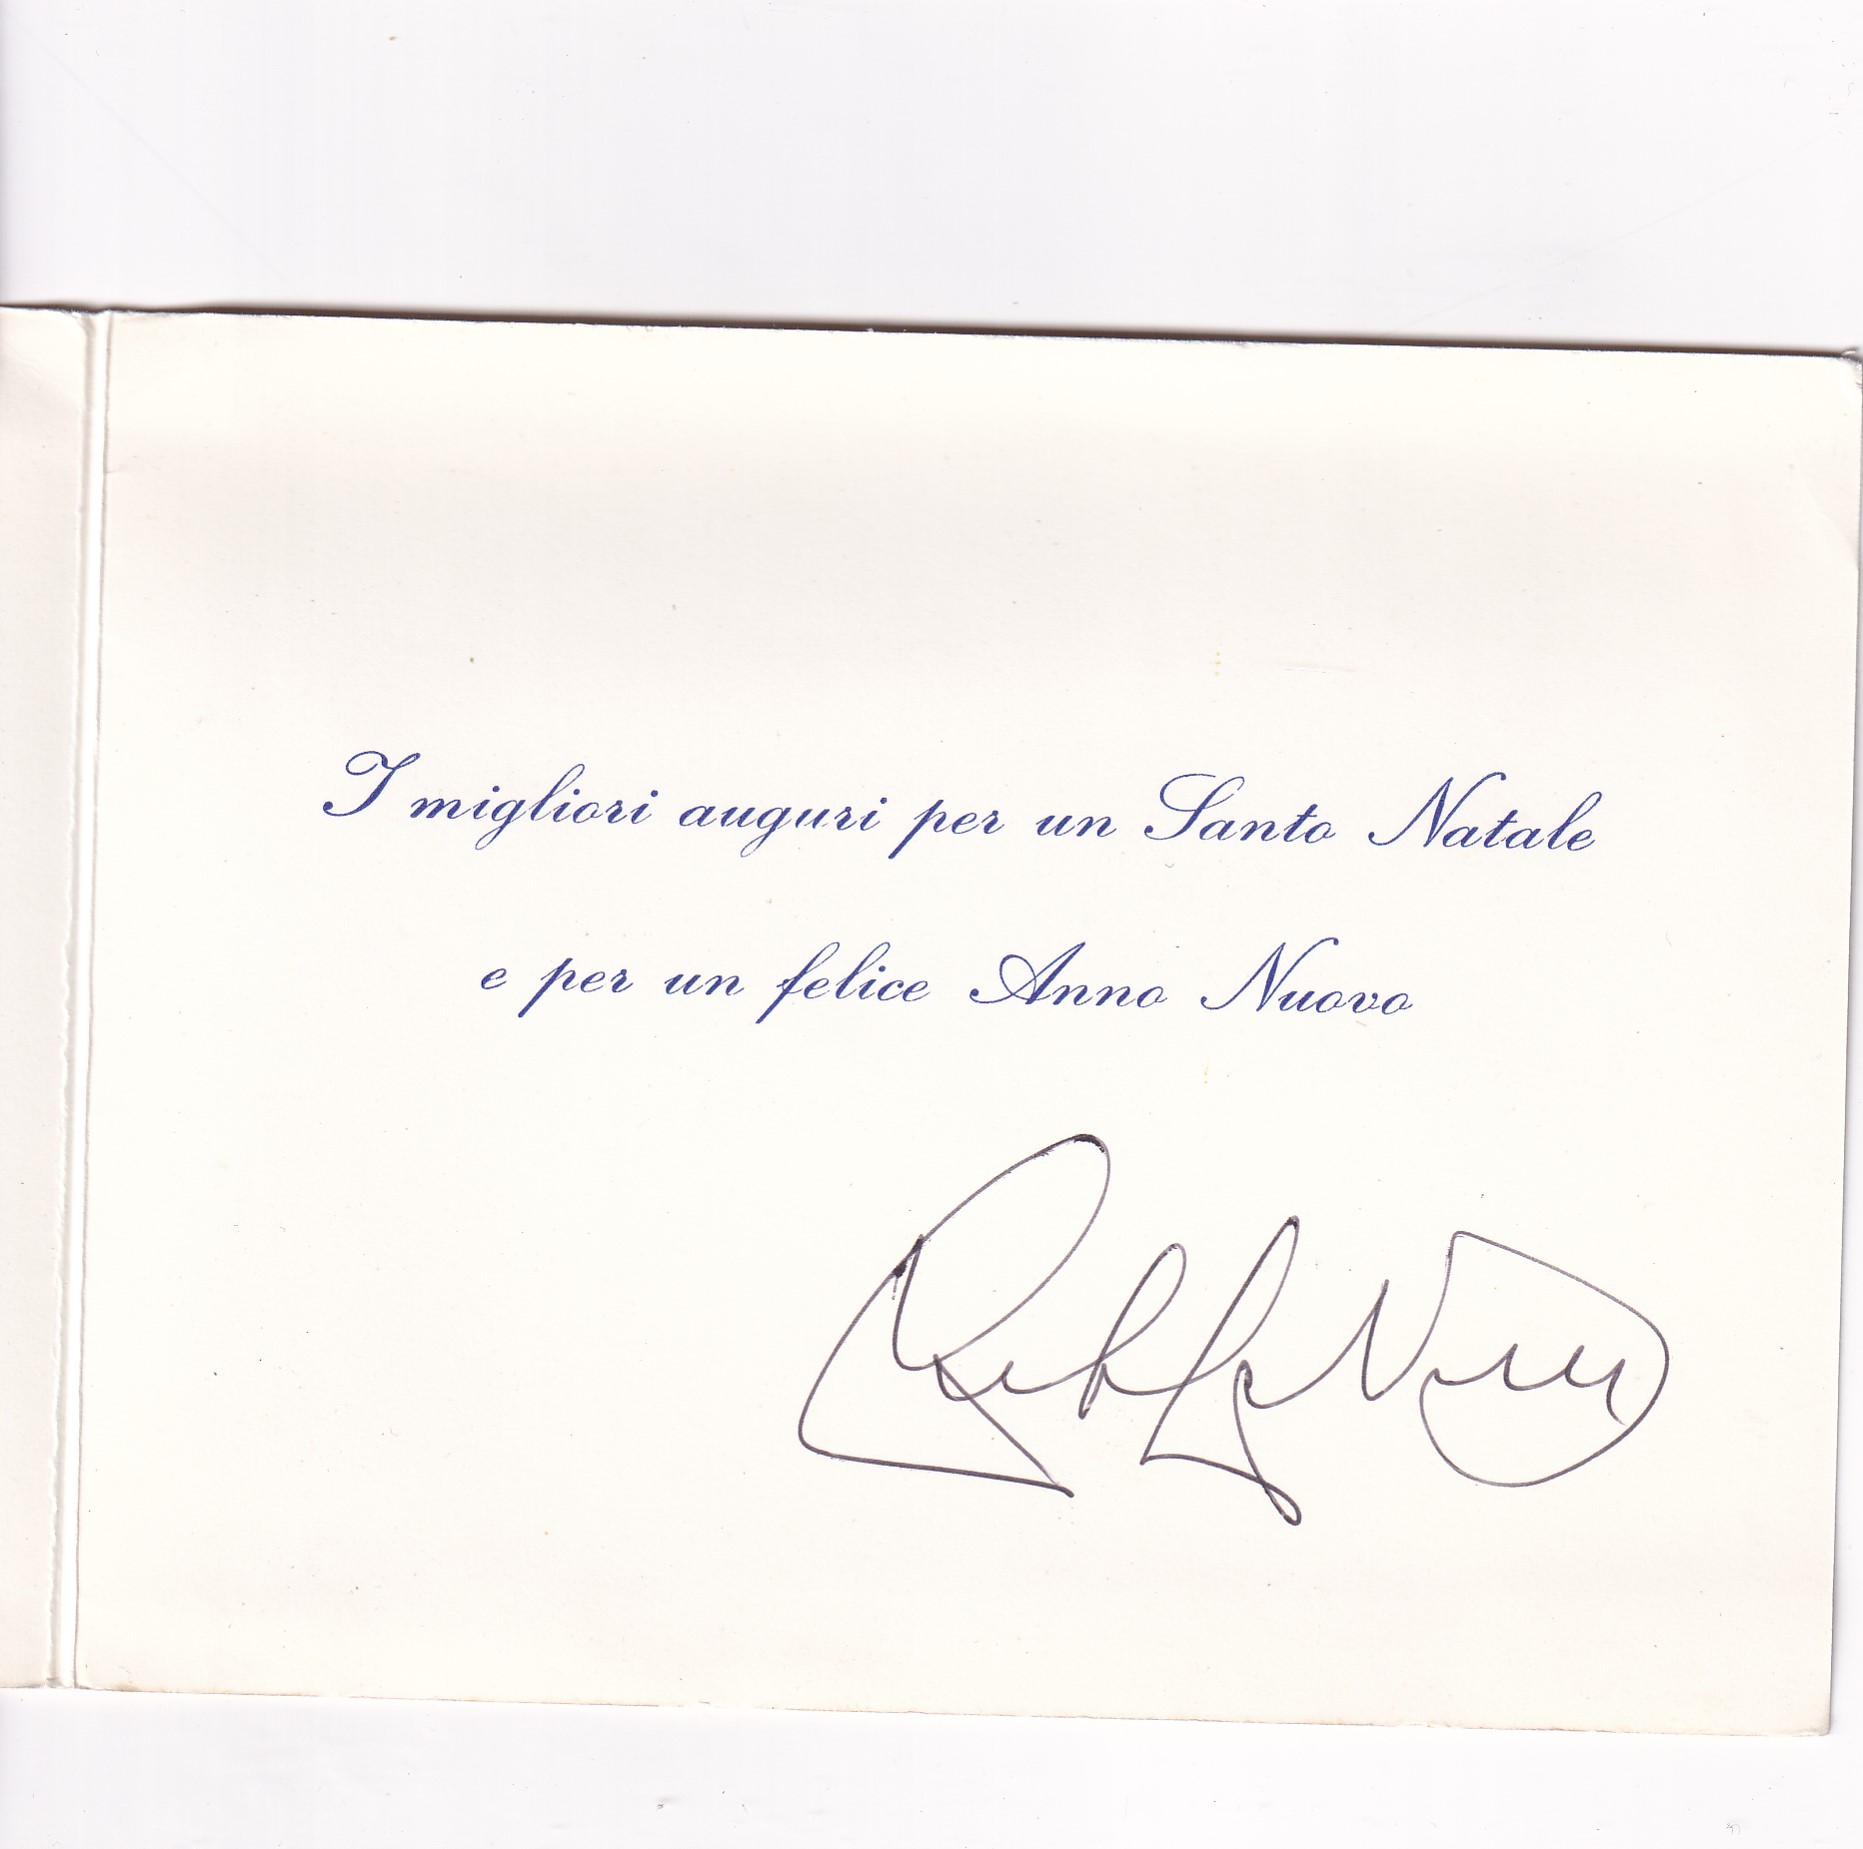 I migliori auguri per un Santo Natale
e per un felice Anno Nuovo